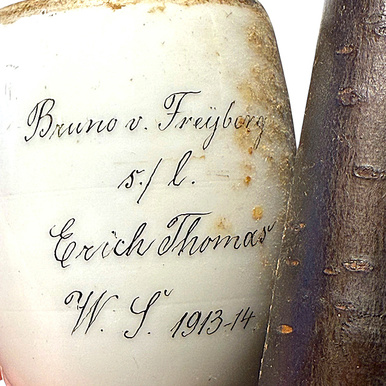 Bruno v. Freÿberg
s./ l.
Erich Thomas
W. S. 1913-14.